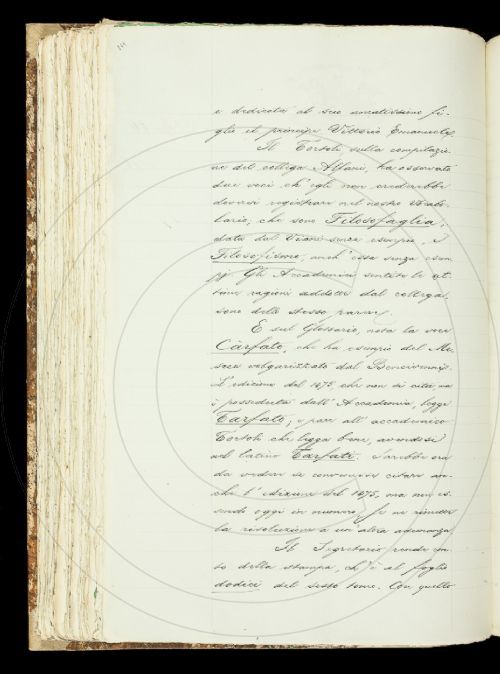 e dedicata al suo amatissimo fi-
glio il principe Vittorio Emanuele.
Il Tortoli sulla compilazio-
ne del collega Alfani, ha osservato
due voci ch'egli non crederebbe
doversi registrare nel nostro Voca-
bolario; che sono Filosofaglia,
data dal Viani senza esempio, e
Filosofismo, anch'essa senza esem-
pj. Gli Accademici sentite le ot-
time ragioni addotte dal collega,
sono dello stesso parere.
E sul Glossario, nota la voce
Carfate, che ha esempio del Me-
sue volgarizzato dal
L'edizione del 1475, che non si cita, ma
è posseduta dall'Accademia, legge
Tarfate; e pare all'accademico
Tortoli che legga bene, avendosi
nel latino Tarfati. Sarebbe ora
da vedere se convenisse citare an-
che l'edizione del 1475, ma non es-
sendo oggi in numero, se ne rimette
la risoluzione a un'altra adunanza.
Il Segretario rende con-
to della stampa, ch'è al foglio
dodici del sesto tomo. Con questo